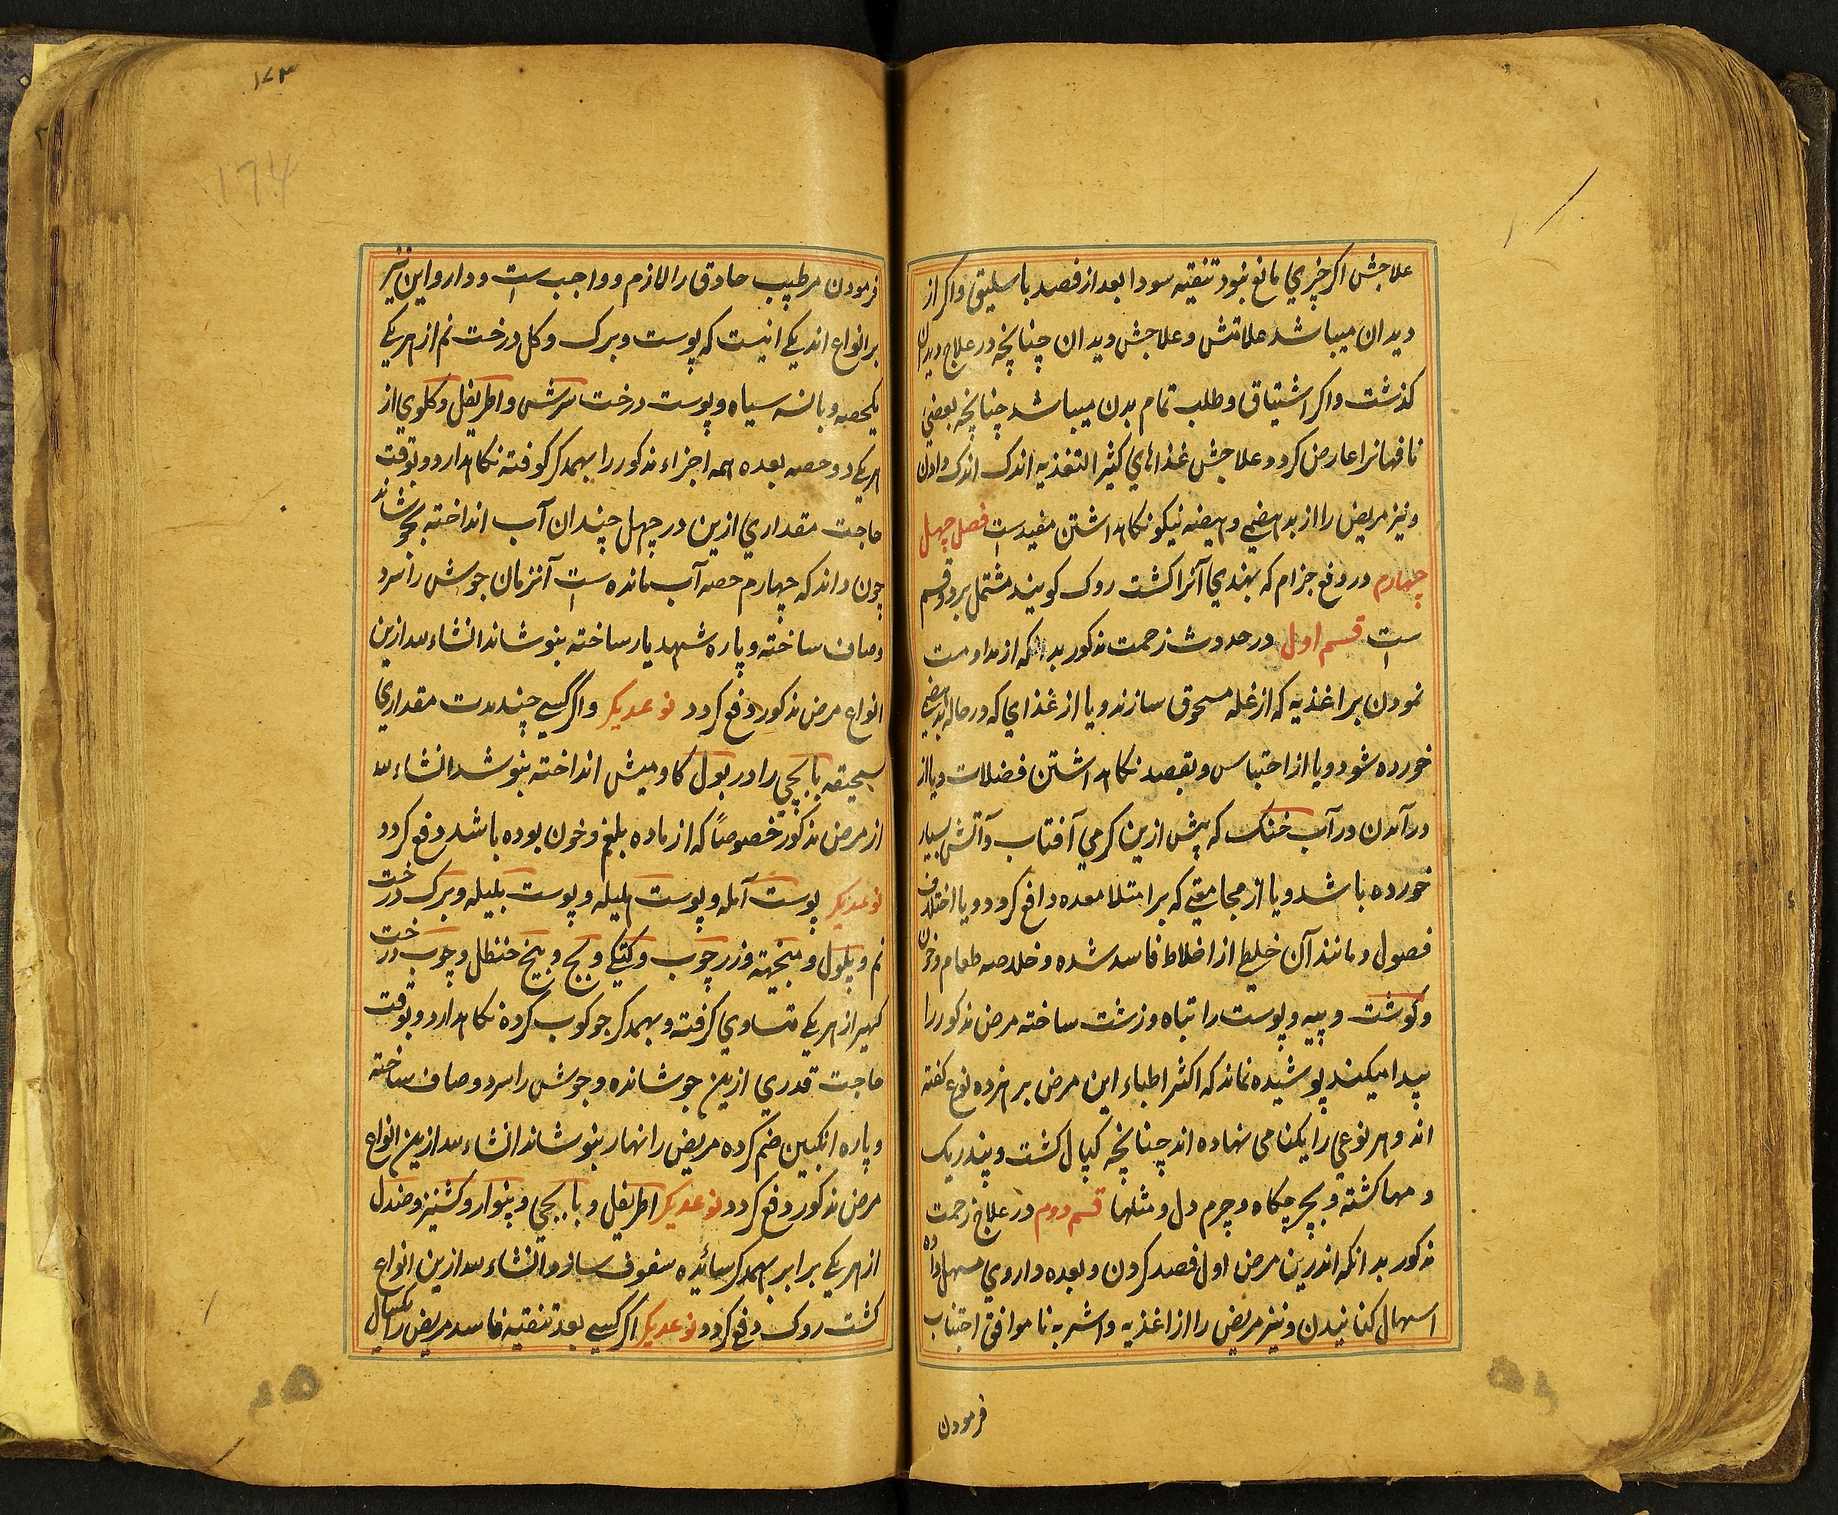 علاجش اکر چیزي مانع نبود تنقیه سودا بعد از فصد باسلیق واکر از
دیدان میباشد علامتش وعلاجش دیدان چنانچه در علاج دیدان
کذشت واکر اشتیاق وطلب تمام بدن میباشد چنانچه بعضي
ناقهانرا عارض کردد علاجش غذاهاي کثیر التغذیه اندک اندک دادن
ونیز مریض را از بدهضمي وهیضه نیکو نکاهداشتن مفیدست فصل چهل
چهارم در دفع جزام که بهندي آنرا کشت روک کویند مشتمل بر دو قسم
ست قسم اول در حدوث زحمت مذکور بدانکه از مداومت
نمودن بر اغذیه که از غله مسحوق سازند ویا از غذاي که در حاله بدهضمي
خورده شود ویا از احتباس وبقصد نکاهداشتن فضلات ویا از
درآمدن در آب خنک که پیش ازین کرمي آفتاب وآتش بسیار
خورده باشد ویا از مجامعتي که بر امتلا معده واقع کردد ویا اختلاف
فصول ومانند آن خلطي از اخلاط فاسد شده وخلاصه طعام وخون
وکوشت وپیه وپوست را تباه وزشت ساخته مرض مذکور را
پیدا میکند پوشیده نماند که اکثر اطباء این مرض بر هژده نوع کفته
اند وهر نوعي را یکنامي نهاده اند چنانچه کپال کشت وپندریک
ومهاکشته وبچرچکاه وچرم دل ومثلها قسم دوم در علاج زحمت
مذکور بدانکه اندرین مرض اول فصد کردن وبعده داروي مسهل داده
اسهال کنانیدن ونیز مریض را از اغذیه واشربه ناموافق اجتناب
فرمودن
۱۷۳
174
فرمودن مر طبیب حاذق را لازم وواجب ست ودارو این نیز
بر انواع اند یکي انیست که پوست وبرک وکل درخت نم از هر یکي
یکحصه وبانسه سیاه وپوست درخت سرشس واطریفل وکلوي از
هر یکي دو حصه بعده همه اجزاء مذکور را بهمدکر کوفته نکاهدارد وبوقت
حاجت مقداري ازین در چهل چندان آب انداخته بجوشاند
چون داند که چهارم حصه آب مانده ست آنزمان جوش را سرد
وصاف ساخته وپاره شهد یار ساخته بنوشاند انشاءلله ازین
انواع مرض مذکور دفع کردد نوعدیکر واکر کسي چند مدت مقداري
سحیقه بابچي را در بول کاومیش انداخته بنوشد انشاءلله
از مرض مذکور خصوصاً که از ماده بلغم وخون بوده باشد دفع کردد
نوعدیکر پوست آمله وپوست هلیله وپوست بلیله وبرک درخت
نم وپلول ومنجیهته وزرچوب وکتکي وبچ وبیخ حنظل وچوب درخت
کهیر از هر یکي متساوي کرفته وبهمدکر جوکوب کرده نکاهدارد وبوقت
حاجت قدري ازین جوشانده وجوش را سرد وصاف ساخته
وپاره انکبین ضم کرده مریض را نهار بنوشاند انشاءلله ازین انواع
مرض مذکور دفع کردد نوعدیکر اطریفل وبابچي وپنوار وکشنیز وصندل
از هر یکي برابر بهمدکر سائیده سفوف سازد انشاءلله ازین انواع
کشت روک دفع کردد نوعدیکر اکر کسي بعد تنقیه فاسد مریض را یکسال